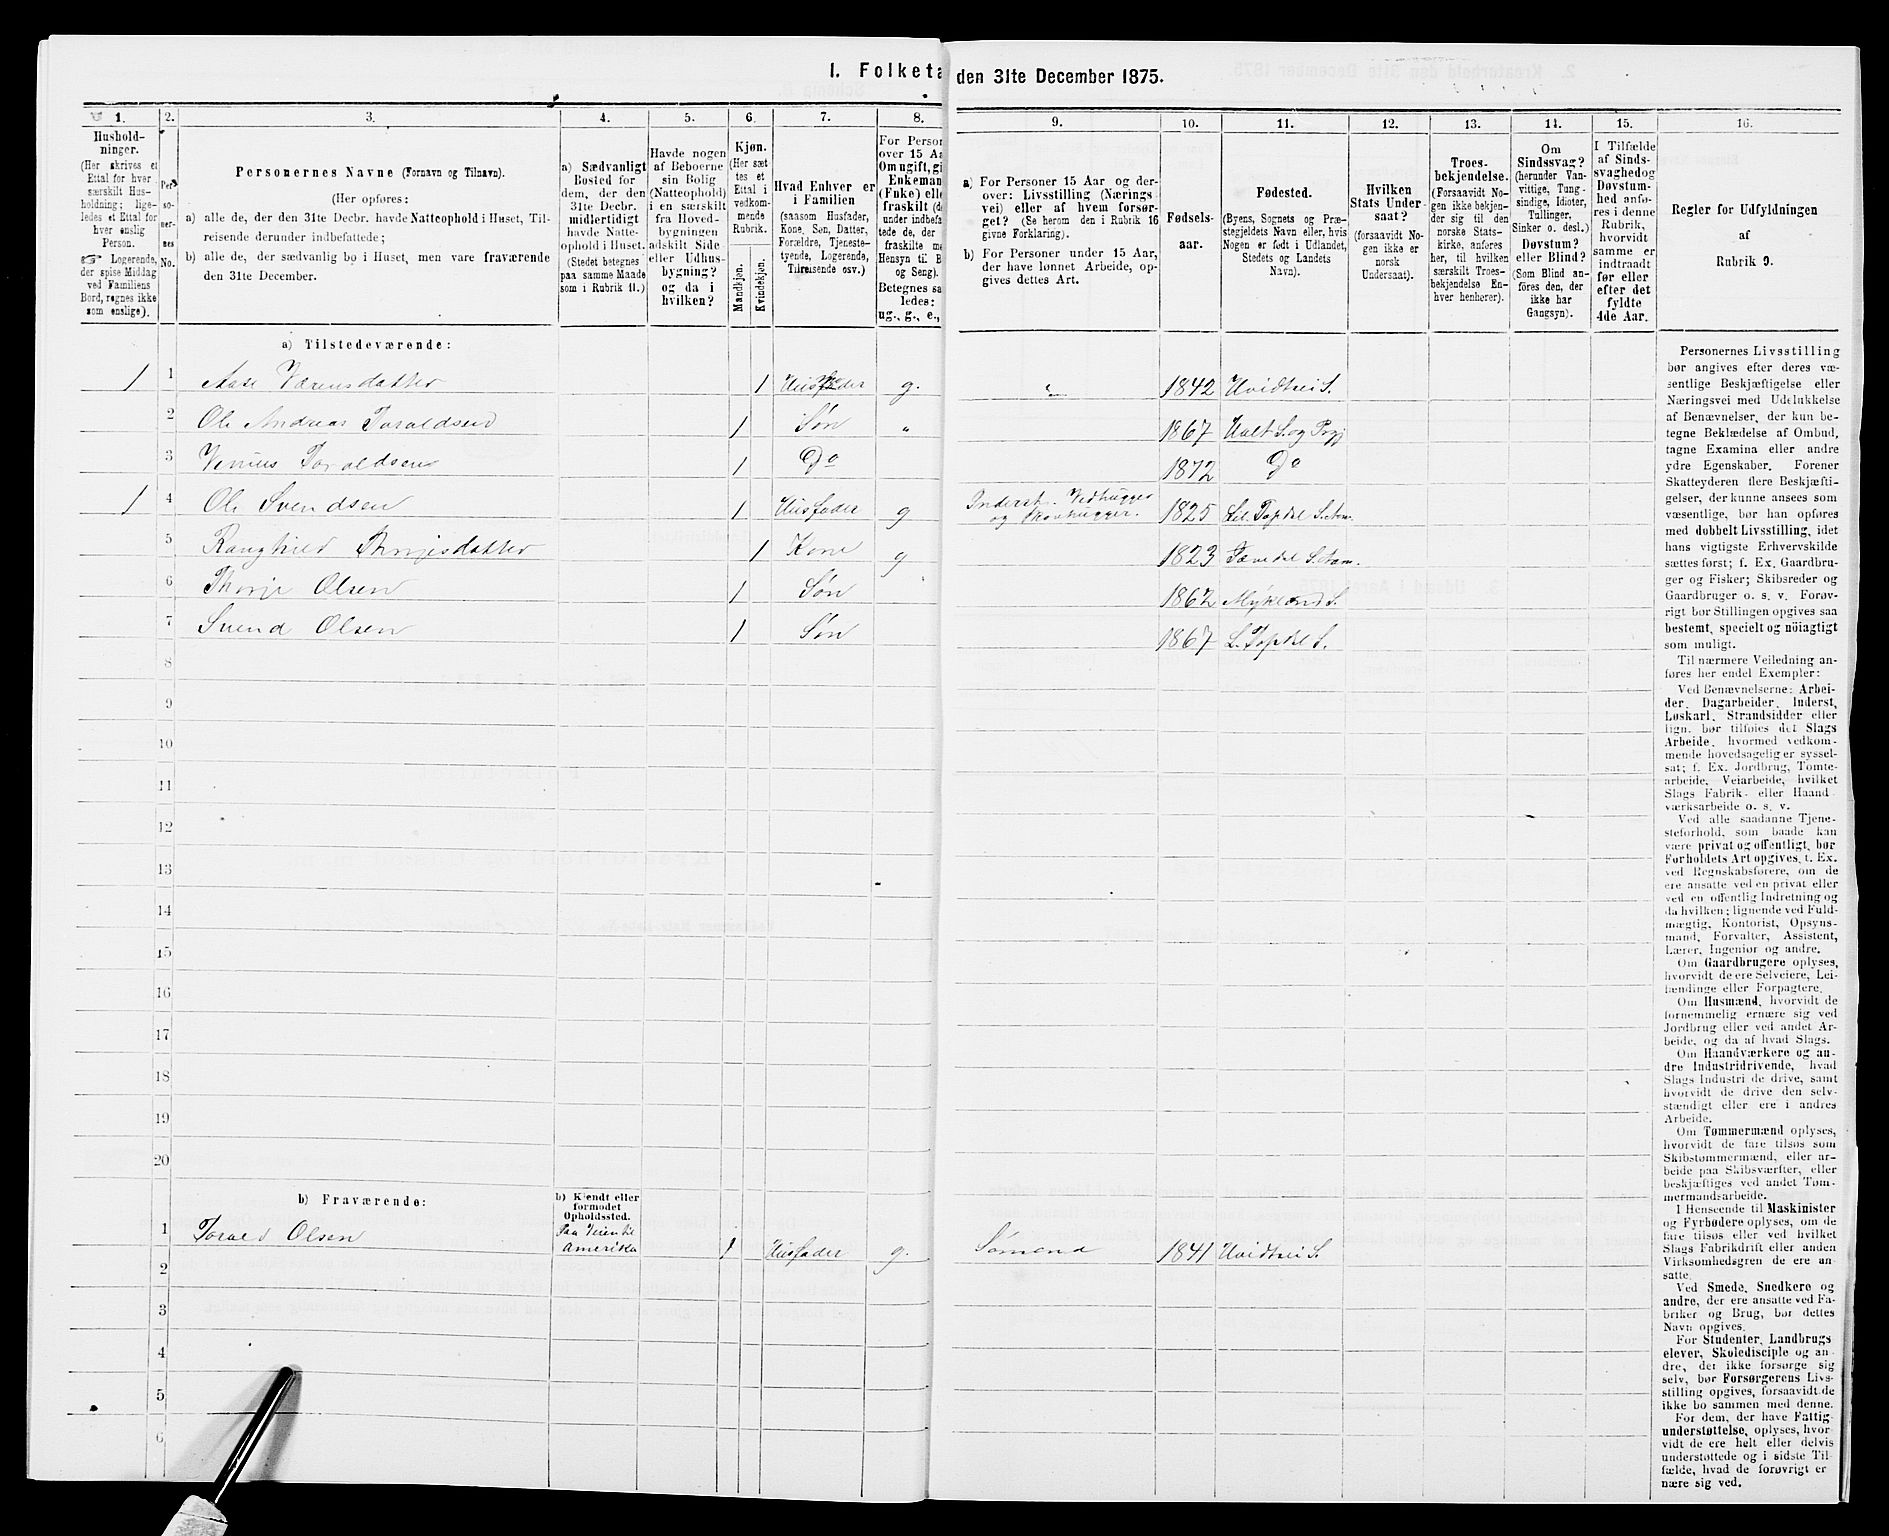 I. Folketæ den 31te December 1875.
1. 2. 3. 4. 5. 6. 7. 8. 9. 10. 11. 12. 13. 14. 15. 16.
Hushold-
ninger.
(Her skrives et
Ettal for hver
særskilt Hus-
holdning; lige-
ledes et Ettal for
hver enslig
Person.
☞ Logerende,
der spise Middag
ved Familiens
Bord, regnes ikke
som enslige).
Per-
so-
ner-
nes
No.
Personernes Navne (Fornavn og Tilnavn).
(Her opføres:
a) alle de, der den 31te Decbr. havde Natteophold i Huset, Til-
reisende derunder indbefattede;
b) alle de, der sædvanlig bo i Huset, men vare fraværende
den 31te December.
a) Sædvanligt
Bosted for
dem, der den
31te Decbr.
midlertidigt
havde Natte-
ophold i Huset.
(Stedet betegnes
paa samme Maade
som i Rubrik 11.)
Havde nogen
af Beboerne
sin Bolig
(Natteophold)
i en særskilt
fra Hoved-
bygningen
adskilt Side-
eller Udhus-
bygning?
og da i
hvilken?
Kjøn.
(Her sæt-
tes et
Ettal i
vedkom-
mende
Rubrik.
Mandkjøn.
Kvindekjøn.
Hvad Enhver er
i Familien
(saasom Husfader,
Kone, Søn, Datter,
Forældre, Tjeneste-
tyende, Logerende,
Tilreisende osv.)
For Person
over 15 Aa
Om ugift, gi
Enkeman
(Enke) elle
fraskilt (de
under indbefa
tede de, der
fraskilte me
Hensyn til B
og Seng).
Betegnes sa
ledes:
ug., g., e.,
a) For Personer 15 Aar og der-
over: Livsstilling (Nærings-
vei) eller af hvem forsør-
get? (Se herom den i Rubrik 16
givne Forklaring).
b) For Personer under 15 Aar,
der have lønnet Arbeide, op-
gives dettes Art.
Fødsels-
aar.
Fødested.
(Byens, Sognets og Præ-
stegjeldets Navn eller, hvis
Nogen er født i Udlandet,
Stedets og Landets
Navn).
Hvilken
Stats Under-
saat?
(forsaavidt No-
gen ikke er
norsk
Undersaat).
Troes-
bekjendelse.
(Forsaavidt No-
gen ikke bekjen-
der sig til den
norske Stats-
kirke, anføres
her, til hvilken
særskilt Troes-
bekjendelse En-
hver henhører).
Om
Sindssvag?
(herunder Van-
vittige, Tung-
sindige, Idioter,
Tullinger,
Sinker o. desl.)
Døvstum?
eller Blind?
(Som Blind an-
føres den, der
ikke har
Gangsyn).
I Tilfælde
af Sinds-
svaghed og
Døvstum-
hed anfø-
res i denne
Rubrik,
hvorvidt
samme er
indtraadt
før eller
efter det
fyldte
4de Aar.
Regler for Udfyldningen
af
Rubrik 9.
a) Tilstedeværende:
1 1 Aase Værensdatter 1 g. 1842 Hvidtsei S.
2 Ole Andreas Toraldsen 1 Søn „ 1867 Holt S. og Prgj
3 Toraldsen 1 Do 1872 Do
1 4 Ole Svendsen 1 Husfader g Inderst. Vedhugger
og Skovhugger. 1825
5 Ranghild Thorjesdatter 1 Kone g 1823
6 Thorje Olsen 1 Søn 1862 Mykland S.
7 Svend Olsen 1 Søn 1867 L. Topdal S.
8
9
10
11
12
13
14
15
16
17
18
19
20
b) Fraværende:
b) Kjendt eller
formodet
Opholdssted.
1 Torald Olsen Paa Veien til
Amerika 1 Husfader g. Sømand 1841 Hvidtsei S.
2
3
4
5
6
Personernes Livsstilling
bør angives efter deres væ-
sentlige Beskjæftigelse eller
Næringsvei med Udelukkelse
af Benævnelser, der kun be-
tegne Beklædelse af Ombud,
tagne Examina eller andre
ydre Egenskaber. Forener
Skatteyderen flere Beskjæfti-
gelser, der kunne ansees som
væsentlige, bør han opføres
med dobbelt Livsstilling, idet
hans vigtigste Erhvervskilde
sættes først; f. Ex. Gaardbru-
ger og Fisker; Skibsreder og
Gaardbruger o. s. v. Forøv-
rigt bør Stillingen opgives saa
bestemt, specielt og nöiagtigt
som muligt.
Til nærmere Veiledning an-
føres her endel Exempler:
Ved Benævnelserne: Arbei-
der, Dagarbeider, Inderst,
Løskarl, Strandsidder eller
lign. bør tilføies det Slags
Arbeide, hvormed vedkom-
mende hovedsagelig er syssel-
sat; f. Ex. Jordbrug, Tomte-
arbeide, Veiarbeide, hvilket
Slags Fabrik- eller Haand-
værksarbeide o. s. v.
Ved alle saadanne Tjene-
steforhold, som baade kan
være privat og offentligt, bør
Forholdets Art opgives, t. Ex.
ved Regnskabsførere, om de
ere ansatte ved en privat eller
ved en offentlig Indretning og
da hvilken; lignende ved Fuld-
mægtig, Kontorist, Opsyns-
mand, Forvalter, Assistent,
Lærer, Ingeniør og andre.
Om Gaardbrugere oplyses,
hvorvidt de ere Selveiere, Lei-
lændinge eller Forpagtere.
Om Husmænd, hvorvidt de
fornemmelig ernære sig ved
Jordbrug eller ved andet Ar-
beide, og da af hvad Slags.
Om Haandværkere og an-
dre Industridrivende, hvad
Slags Industri de drive, samt
hvorvidt de drive den selv-
stændigt eller ere i andres
Arbeide.
Om Tømmermænd oplyses,
hvorvidt de fare tilsøs som
Skibstømmermænd, eller ar-
beide paa Skibsværfter, eller
beskjæftiges ved andet Tøm-
mermandsarbeide.
I Henseende til Maskinister
og Fyrbødere oplyses, om de
fare tilsøs eller ved hvilket
Slags Fabrikdrift eller anden
Virksomhedsgren de ere an-
satte.
Ved Smede, Snedkere og
andre, der ere ansatte ved Fa-
briker og Brug, bør dettes
Navn opgives.
For Studenter, Landbrugs-
elever, Skoledisciple og an-
dre, der ikke forsørge sig
selv, bør Forsørgerens Livs-
stilling opgives, forsaavidt de
ikke bo sammen med denne.
For dem, der have Fattig-
understøttelse, oplyses, hvor-
vidt de ere helt eller delvis
understøttede og i sidste Til-
fælde, hvad de forøvrigt er-
nære sig ved.